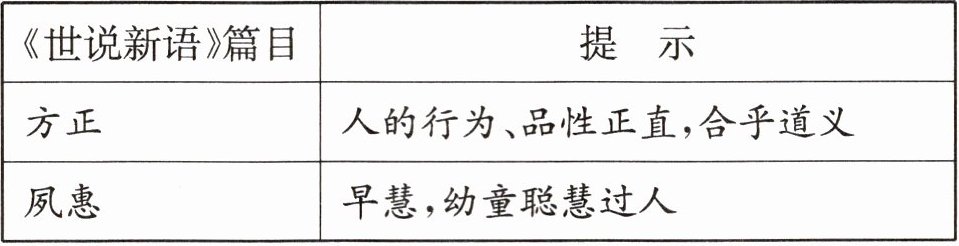 《世说新语》篇目 提 示
方正 人的行为、品性正直,合乎道义
夙惠 早慧,幼童聪慧过人